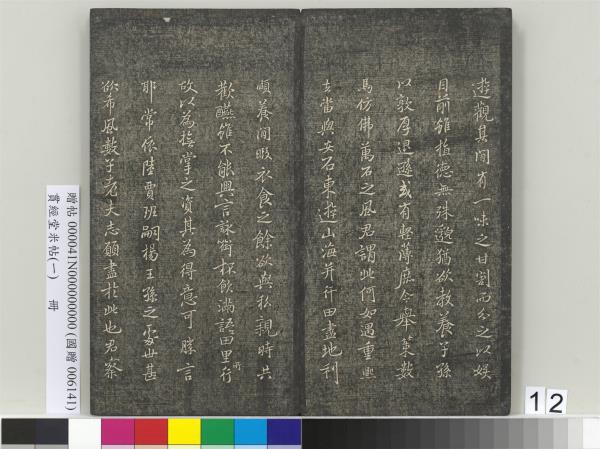 遊觀其間有一味之甘割而分之以娛
目前雖植德無殊邈猶欲教養子孫
以敦厚退遜或有輕薄庶令舉策數
馬仿佛萬石之風君謂此何如遇重熙
去當與安石東遊山海并行田盡地利
頤養閒暇衣食之餘欲與私親時共
歡讌雖不能興言詠銜杯飲滿語田里所行
故以為撫掌之資其為得意可勝言
耶常依陸賈班嗣楊王孫之處世甚
欲希風數子老夫志願盡於此也君察
贈帖 000041N000000000 (國贈 006141)
貫經堂米帖(一) 冊
12